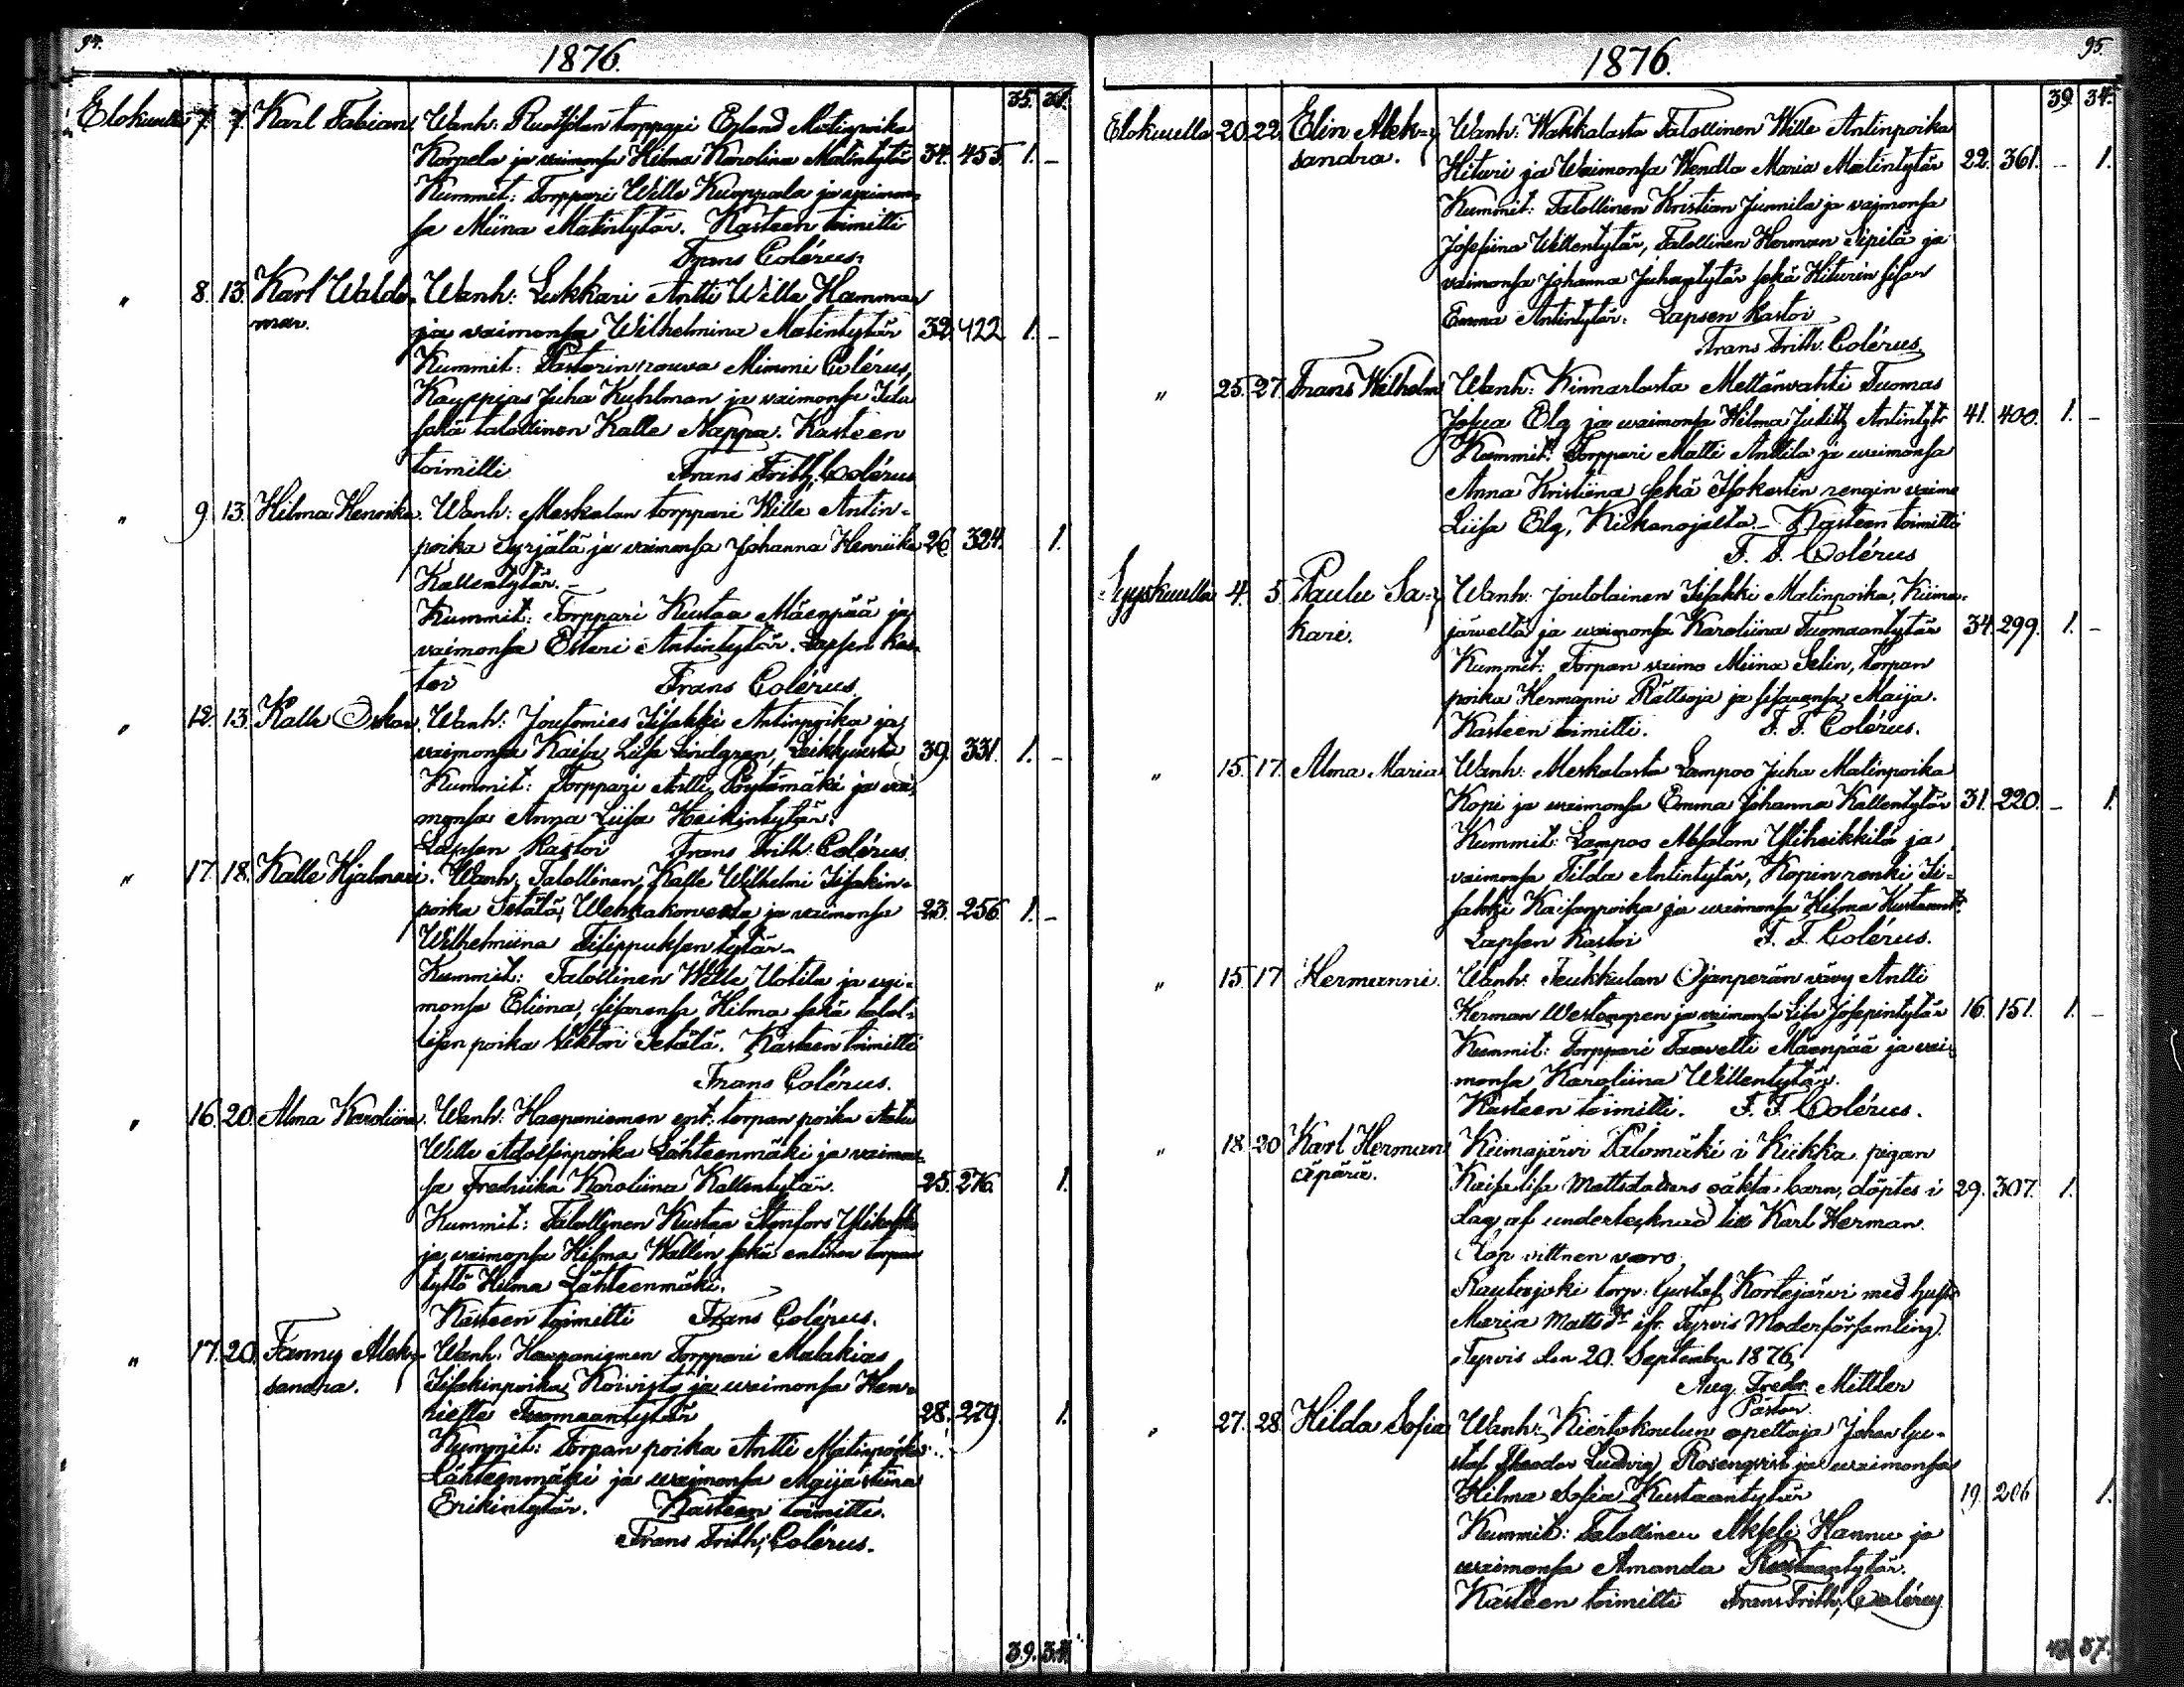 94.
1876.
35. 31.
Elokuulla 7. 7. Karl Fabian. Wanh: Ruotsilan torppari Erland Matinpoika
Korpela ja vaimonsa Hilma Karolina Matintytär 34. 455. 1. –
Kummit: Torppari Wille Kuoppala ja vaimon-
sa Miina Matintytär. Kasteen toimitti
Frans Colérus.
" 8. 13. Karl Walde- Wanh: Lukkari Antti Wille Hamman
mar. ja vaimonsa Wilhelmina Matintytär 32. 422 1. –
Kummit: Pastorin rouva Mimmi Colérus,
Kauppias Juha Kuhlman ja vaimonsa Ida
sekä talollinen Kalle Nappa. Kasteen
toimitti Frans Frith. Colérus
" 9. 13. Hilma Henrika. Wanh: Meskalan torppari Wille Antin-
poika Syrjälä ja vaimonsa Johanna Henriika 26. 324. 1.
Kallentytär. –
Kummit: Torppari Kustaa Mäenpää ja
vaimonsa Esteri Antintytär. Lapsen kas-
toi Frans Colérus.
" 12. 13. Kalle Oskar. Wanh: Joutomies Iisakki Antinpoika ja
vaimonsa Kaisa Liisa Lindgren, 39. 331. 1. –
Kummit: Torppari Antti Pöytämäki ja vai-
monsa Anna Liisa Heikintytär.
Lapsen kastoi Frans Frith. Colérus.
" 17. 18. Kalle Hjalmari. Wanh. Talollinen Kalle Wilhelmi Iisakin-
poika Setälä, Wehkakorvesta ja vaimonsa 23. 256. 1. –
Wilhelmiina Filippuksen tytär –
Kummit: Talollinen Wille Uotila ja vai-
monsa Eliina, sisarensa Hilma sekä talol-
lisen poika Viktori Setälä. Kasteen toimitti
Frans Colérus.
" 16. 20. Alma Karoliina. Wanh: Haapaniemen ent. torpan poika
Wille Adolfinpoika Lähteenmäki ja vaimon-
sa Fredriika Karoliina Kallentytär. 25. 276. 1.
Kummit: Talollinen Kustaa Stenfors
ja vaimonsa Hilma Wallén sekä entinen torpan
tyttö Helma Lähteenmäki.
Kasteen toimitti Frans Colérus.
" 17. 20. Fanny Alek- Wanh. Haapaniemen Torppari Malakias
sandra. Iisakinpoika Koivisto ja vaimonsa Hen-
riette Tuomaantytär 28. 279. 1.
Kummit: Torpan poika Antti Matinpoika
Lähteenmäki ja vaimonsa Maija Stiina
Erikintytär. Kasteen toimitti.
Frans Frith. Colérus.
39. 34.
95
1876.
39. 34.
Elokuulla 20. 22. Elin Alek- Wanh: Wakkalasta Talollinen Wille Antinpoika
sandra. Hituri ja Waimonsa Wendla Maria Matintytär 22. 361. – 1.
Kummit: Talollinen Kristian Junnila ja vaimonsa
Josefiina Willentytär, Talollinen Herman Sipilä ja
vaimonsa Johanna Juhantytär sekä Hiturin sisar
Emma Antintytär. Lapsen kastoi
Frans Frith. Colérus.
" 25. 27. Frans Wilhelm Wanh: Kinnarlasta Mettänvahti Tuomas
Josua Elg ja vaimonsa Hilma Judith Antintytr 41. 400. 1. –
Kummit: Torppari Matti Anttila ja vaimonsa
Anna Kristiina sekä Isokartin rengin vaimo
Liisa Elg, Kiikanojalta. – Kasteen toimitti
F. F. Colérus
Syyskuulla 4. 5. Paulu Sa- Wanh: Joutolainen Iisakki Matinpoika, Kiima-
kari. järveltä ja vaimonsa Karoliina Tuomaantytär 34. 299. 1. –
Kummit: Torpan vaimo Miina Selin, torpan
poika Hermanni Rättoja ja sisarensa Maija.
Kasteen toimitti. F. F. Colérus.
" 15. 17. Alma Maria Wanh: Meskalasta Lampoo Juha Matinpoika
Kopi ja vaimonsa Emma Johanna Kallentytär 31. 220. – 1.
Kummit: Lampoo Absalom Yliheikkilä ja
vaimonsa Tilda Antintytär, Kopin renki Ii-
sakki Kaisanpoika ja vaimonsa Hilma Kustaant.
Lapsen kastoi F. F. Colérus.
" 15. 17 Hermanni. Wanh: Ojanperän vävy Antti
Herman Westergren ja vaimonsa Liisa Josepintytär 16. 151. 1. –
Kummit: Torppari Taavetti Mäenpää ja vai-
monsa Karoliina Willentytär.
Kasteen toimitti. F. F. Colérus.
" 18 20 Karl Herman Kiimajärvi Palomäki i Kiikka pigan
äpärä. Kaisa Lisa Mattsdotters oäkta barn, döptes i 29. 307. 1.
dag af undertecknad till Karl Herman.
Dop vittnen voro
Rautajoki torp: Gustaf Kortejärvi med hustr
Maria Matts dr ifr. Tyrvis Moderförsamling.
Tyrvis den 20. September 1876,
Aug. Fredr. Mittler
Pastor.
" 27. 28. Hilda Sofia Wanh: Kiertokoulun opettaja Johan Gu-
staf Theodor Ludvig Rosenqvist ja vaimonsa
Hilma Sofia Kustaantytär 19. 206 1.
Kummit: Talollinen Akseli Hannu ja
vaimonsa Amanda Kustaantytär.
Kasteen toimitti Frans Frith. Colérus
37.